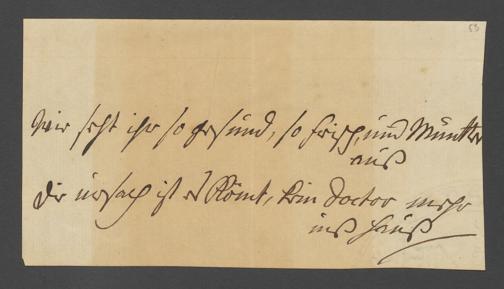 53
Wie seht ihr so gesund, so frisch, und Munter
auß
Die ursach ist es Kömt, kein Doctor mehr
inß hauß